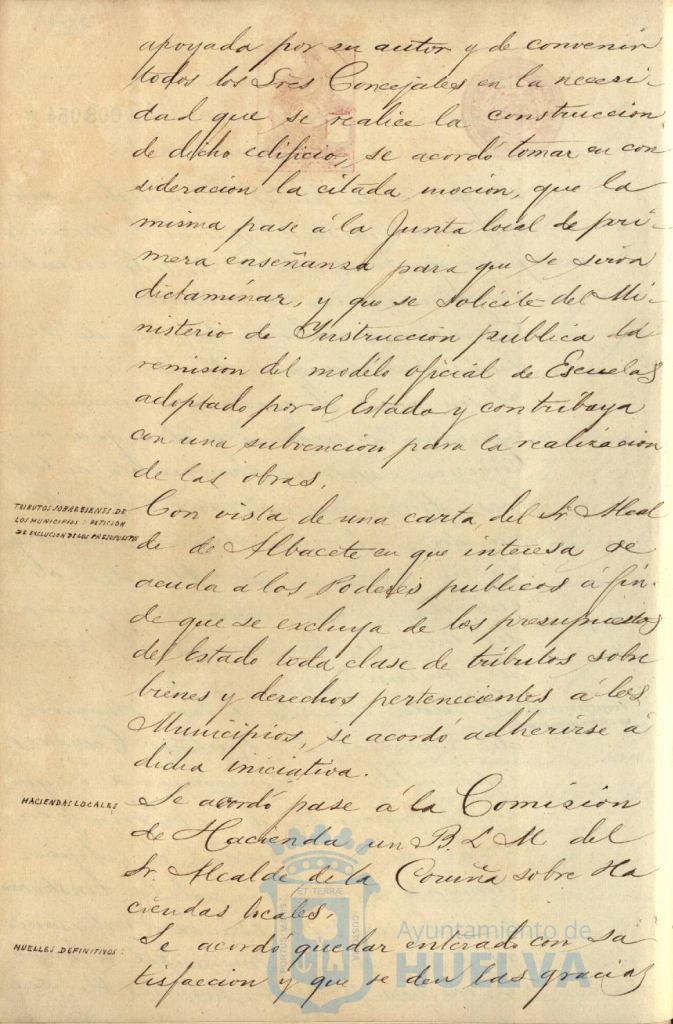 apoyada por su autor y de convenir
todos los Sres Concejales en la necesi-
dad que se realice la construccion
de dicho edificio, se acordó tomar en con
sideracion la citada mocion, que la
misma pase á la Junta local de pri-
mera enseñanza para que se sirva
dictaminar, y que se solicite del Mi-
nisterio de Instrucción pública la
remision del modelo oficial de Escuelas
adoptado por el Estado y contribuya
con una subvencion para la realizacion
de las obras.
TRIBUTOS SOBRE BIENES DE
LOS MUNICIPIOS: PETICION
DE EXCLUCION DE LOS PRESUPUESTOS
Con vista de una carta del Sr. Alcal
de de Albacete en que interesa se
acuda á los Poderes públicos á fin
de que se excluya de los presupuestos
del Estado toda clase de tributos sobre
bienes y derechos pertenecientes á los
Municipios, se acordó adherirse á
dicha iniciativa.
HACIENDAS LOCALES
Se acordó pase á la Comision
de Hacienda un B. L. M. del
Sr. Alcalde de la Coruña sobre Ha
ciendas locales.
MUELLES DEFINITIVOS:
Se acordó quedar enterado con sa
tisfaccion y que se den las gracias
Ayuntamiento de
HUELVA